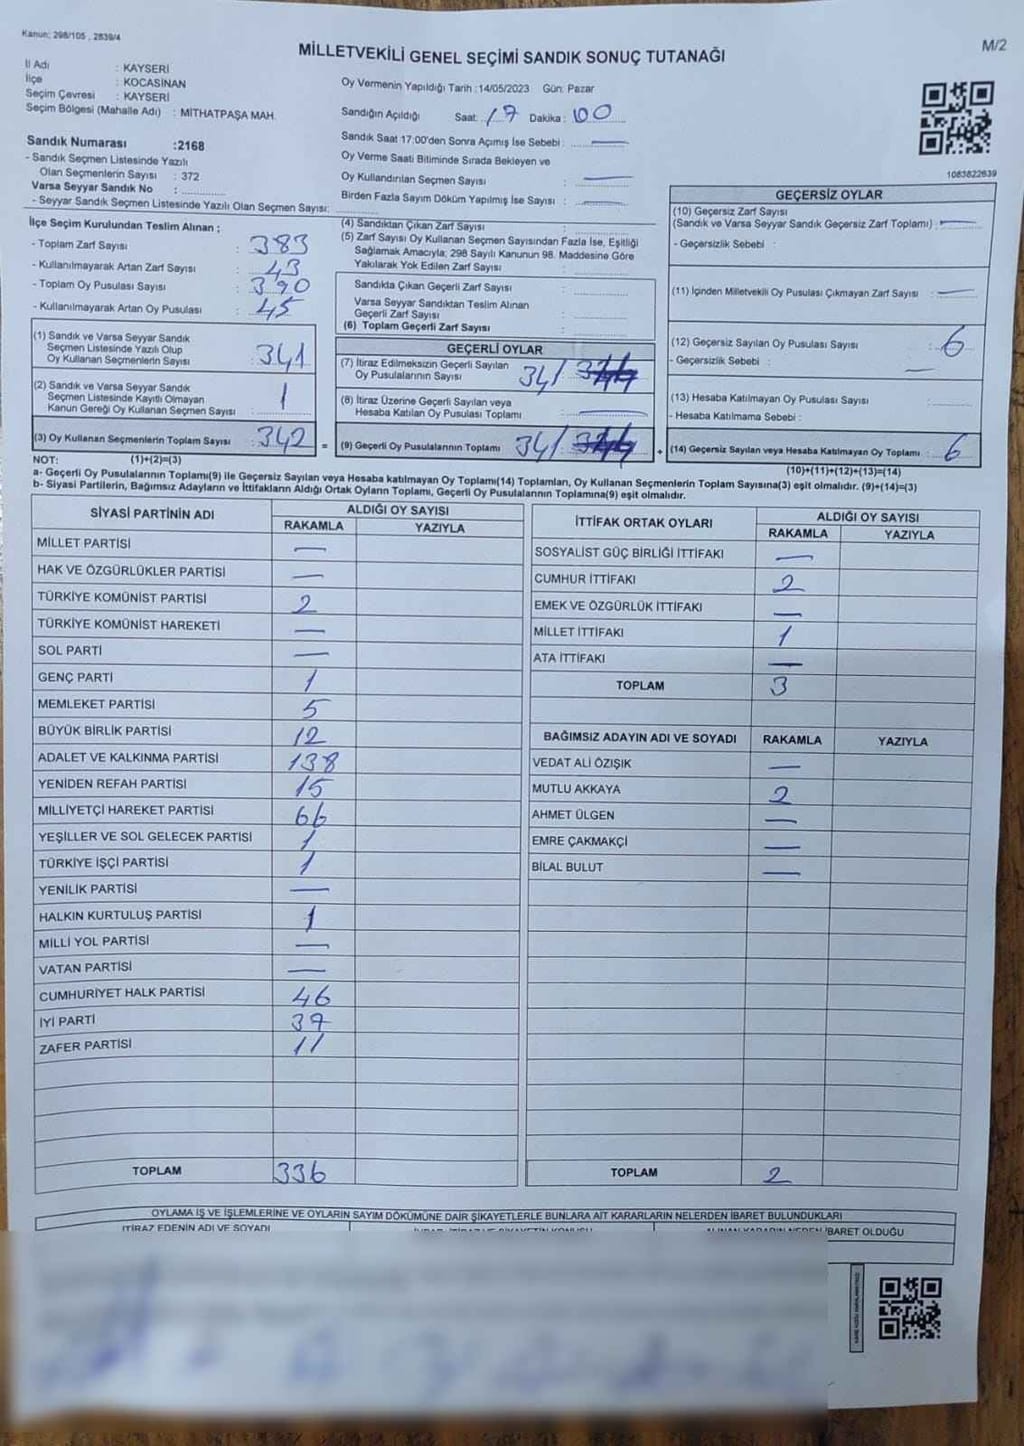 Kanun; 298/105 , 2839/4
M/2
MİLLETVEKİLİ GENEL SEÇİMİ SANDIK SONUÇ TUTANAĞI
İl Adı : KAYSERİ
İlçe : KOCASİNAN
Seçim Çevresi : KAYSERİ
Seçim Bölgesi (Mahalle Adı) : MİTHATPAŞA MAH.
Sandık Numarası :2168
- Sandık Seçmen Listesinde Yazılı
Olan Seçmenlerin Sayısı : 372
Varsa Seyyar Sandık No :
- Seyyar Sandık Seçmen Listesinde Yazılı Olan Seçmen Sayısı:
Oy Vermenin Yapıldığı Tarih :14/05/2023 Gün: Pazar
Sandığın Açıldığı Saat: 17 Dakika: 00
Sandık Saat 17:00'den Sonra Açımış İse Sebebi : —
Oy Verme Saati Bitiminde Sırada Bekleyen ve
Oy Kullandırılan Seçmen Sayısı : —
Birden Fazla Sayım Döküm Yapılmış İse Sayısı : —
1083822639
İlçe Seçim Kurulundan Teslim Alınan ;
- Toplam Zarf Sayısı : 383
- Kullanılmayarak Artan Zarf Sayısı : 43
- Toplam Oy Pusulası Sayısı : 390
- Kullanılmayarak Artan Oy Pusulası : 45
(1) Sandık ve Varsa Seyyar Sandık
Seçmen Listesinde Yazılı Olup
Oy Kullanan Seçmenlerin Sayısı : 341
(2) Sandık ve Varsa Seyyar Sandık
Seçmen Listesinde Kayıtlı Olmayan
Kanun Gereği Oy Kullanan Seçmen Sayısı : 1
(3) Oy Kullanan Seçmenlerin Toplam Sayısı : 342
(4) Sandıktan Çıkan Zarf Sayısı :
(5) Zarf Sayısı Oy Kullanan Seçmen Sayısından Fazla İse, Eşitliği
Sağlamak Amacıyla; 298 Sayılı Kanunun 98. Maddesine Göre
Yakılarak Yok Edilen Zarf Sayısı :
Sandıkta Çıkan Geçerli Zarf Sayısı :
Varsa Seyyar Sandıktan Teslim Alınan
Geçerli Zarf Sayısı :
(6) Toplam Geçerli Zarf Sayısı :
GEÇERLİ OYLAR
(7) İtiraz Edilmeksizin Geçerli Sayılan
Oy Pusulalarının Sayısı 341
(8) İtiraz Üzerine Geçerli Sayılan veya
Hesaba Katılan Oy Pusulası Toplamı : —
= (9) Geçerli Oy Pusulalarının Toplamı 341
GEÇERSİZ OYLAR
(10) Geçersiz Zarf Sayısı
(Sandık ve Varsa Seyyar Sandık Geçersiz Zarf Toplamı) : —
- Geçersizlik Sebebi :
(11) İçinden Milletvekili Oy Pusulası Çıkmayan Zarf Sayısı : —
(12) Geçersiz Sayılan Oy Pusulası Sayısı : 6
- Geçersizlik Sebebi : —
(13) Hesaba Katılmayan Oy Pusulası Sayısı :
- Hesaba Katılmama Sebebi :
+ (14) Geçersiz Sayılan veya Hesaba Katılmayan Oy Toplamı : 6
NOT: (1)+(2)=(3)
(10)+(11)+(12)+(13)=(14)
a- Geçerli Oy Pusulalarının Toplamı(9) ile Geçersiz Sayılan veya Hesaba Katılmayan Oy Toplamı(14) Toplamları, Oy Kullanan Seçmenlerin Toplam Sayısına(3) eşit olmalıdır. (9)+(14)=(3)
b- Siyasi Partilerin, Bağımsız Adayların ve İttifakların Aldığı Ortak Oyların Toplamı, Geçerli Oy Pusulalarının Toplamına(9) eşit olmalıdır.
SİYASİ PARTİNİN ADI ALDIĞI OY SAYISI
RAKAMLA YAZIYLA
MİLLET PARTİSİ —
HAK VE ÖZGÜRLÜKLER PARTİSİ —
TÜRKİYE KOMÜNİST PARTİSİ 2
TÜRKİYE KOMÜNİST HAREKETİ —
SOL PARTİ —
GENÇ PARTİ 1
MEMLEKET PARTİSİ 5
BÜYÜK BİRLİK PARTİSİ 12
ADALET VE KALKINMA PARTİSİ 138
YENİDEN REFAH PARTİSİ 15
MİLLİYETÇİ HAREKET PARTİSİ 66
YEŞİLLER VE SOL GELECEK PARTİSİ 1
TÜRKİYE İŞÇİ PARTİSİ 1
YENİLİK PARTİSİ —
HALKIN KURTULUŞ PARTİSİ 1
MİLLİ YOL PARTİSİ —
VATAN PARTİSİ —
CUMHURİYET HALK PARTİSİ 46
İYİ PARTİ 37
ZAFER PARTİSİ 11
TOPLAM 336
İTTİFAK ORTAK OYLARI ALDIĞI OY SAYISI
RAKAMLA YAZIYLA
SOSYALİST GÜÇ BİRLİĞİ İTTİFAKI —
CUMHUR İTTİFAKI 2
EMEK VE ÖZGÜRLÜK İTTİFAKI —
MİLLET İTTİFAKI 1
ATA İTTİFAKI —
TOPLAM 3
BAĞIMSIZ ADAYIN ADI VE SOYADI RAKAMLA YAZIYLA
VEDAT ALİ ÖZIŞIK —
MUTLU AKKAYA 2
AHMET ÜLGEN —
EMRE ÇAKMAKÇİ —
BİLAL BULUT —
TOPLAM 2
OYLAMA İŞ VE İŞLEMLERİNE VE OYLARIN SAYIM DÖKÜMÜNE DAİR ŞİKAYETLERLE BUNLARA AİT KARARLARIN NELERDEN İBARET BULUNDUKLARI
İTİRAZ EDENİN ADI VE SOYADI
İBARET OLDUĞU